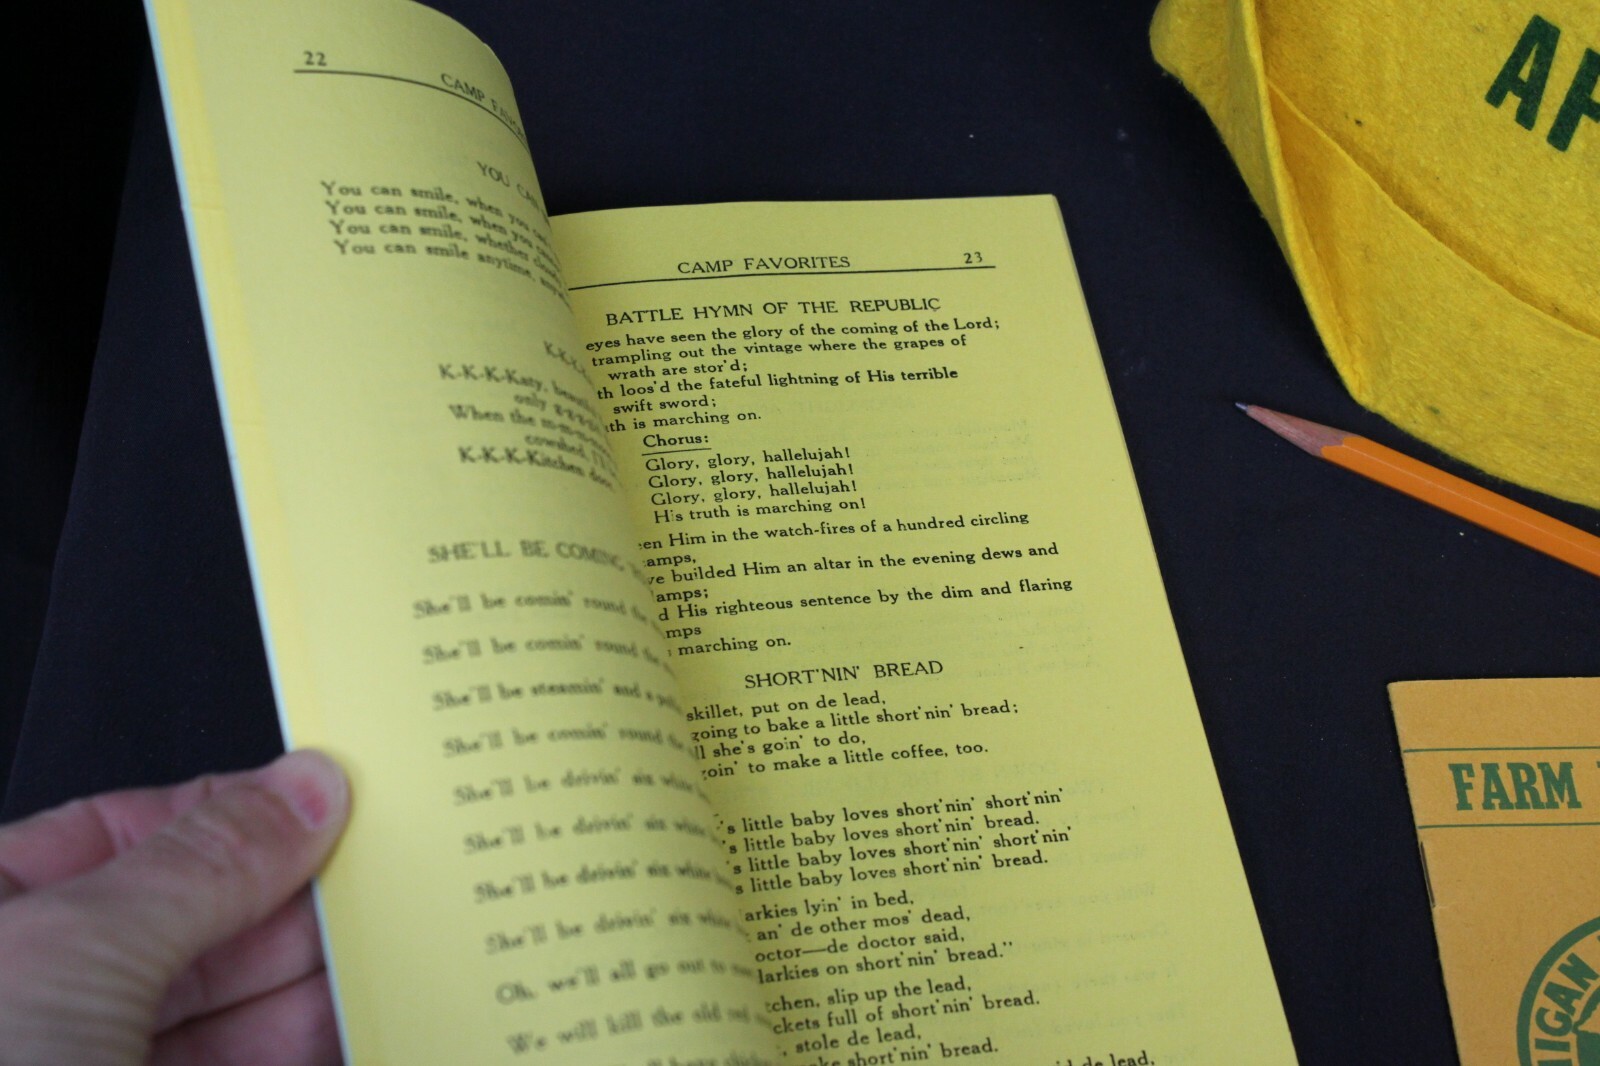 22
CAMP
YOU
You can smile, when you
You can smile, when you
You can smile, whether
You can smile anytime,
K-K-K-Katy,
only
When the
cowshed,
K-K-K-Kitchen door,
SHE'LL BE COMING
She'll be comin' round the
She'll be comin' round the
She'll be steamin' and a
She'll be comin' round the
She'll be drivin' six white
She'll be drivin' six white
She'll be drivin' six white
She'll be drivin' six white
Oh, we'll all go out to
We will kill the old red
CAMP FAVORITES 23
BATTLE HYMN OF THE REPUBLIC
eyes have seen the glory of the coming of the Lord;
trampling out the vintage where the grapes of
wrath are stor'd;
th loos'd the fateful lightning of His terrible
swift sword;
th is marching on.
Chorus:
Glory, glory, hallelujah!
Glory, glory, hallelujah!
Glory, glory, hallelujah!
His truth is marching on!
en Him in the watch-fires of a hundred circling
amps,
ve builded Him an altar in the evening dews and
amps;
d His righteous sentence by the dim and flaring
mps
marching on.
SHORT'NIN' BREAD
skillet, put on de lead,
going to bake a little short'nin' bread;
ll she's goin' to do,
goin' to make a little coffee, too.
's little baby loves short'nin' short'nin'
's little baby loves short'nin' bread.
's little baby loves short'nin' short'nin'
s little baby loves short'nin' bread.
arkies lyin' in bed,
an' de other mos' dead,
octor—de doctor said,
larkies on short'nin' bread."
tchen, slip up the lead,
ckets full of short'nin' bread.
, stole de lead,
ake short'nin' bread.
de lead,
AP
FARM
IGAN